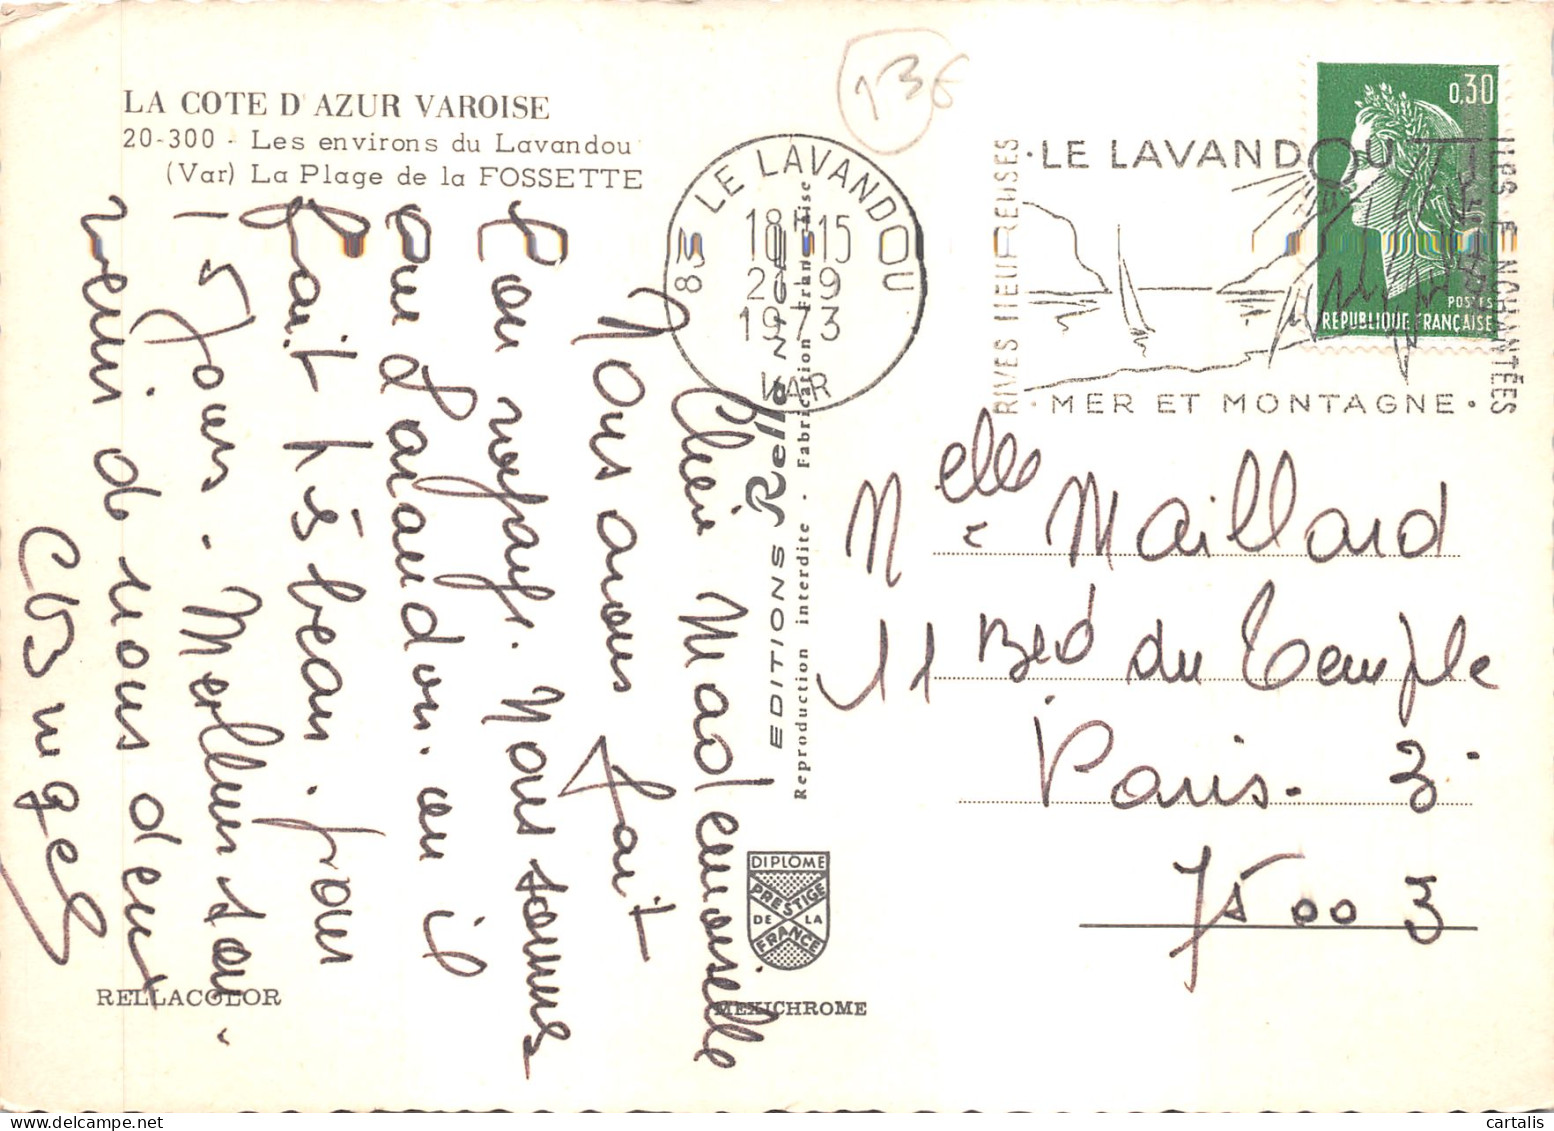 LA COTE D'AZUR VAROISE
20-300 - Les environs du Lavandou
(Var) La Plage de la FOSSETTE
13€
83 LE LAVANDOU
18H15
2-9
1973
VAR
RIVES HEUREUSES
· LE LAVANDOU
· MER ET MONTAGNE ·
ILES ENCHANTÉES
0,30
POSTES
REPUBLIQUE FRANÇAISE
Chère Mademoiselle
Nous avons fait
bon voyage. Nous sommes
au Lavandou. ou il
fait très beau. pour
15 jours. Meilleurs sou-
venirs de nous deux
EDITIONS Rella NICE
Reproduction interdite - Fabrication Française
Melle Maillard
11 Bd du Temple
Paris. 3e
75003
DIPLOME
PRESTIGE
DE LA
FRANCE
RELLACOLOR
MEXICHROME
cartalis